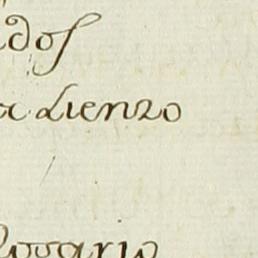 ados
a Lienzo
Rosario